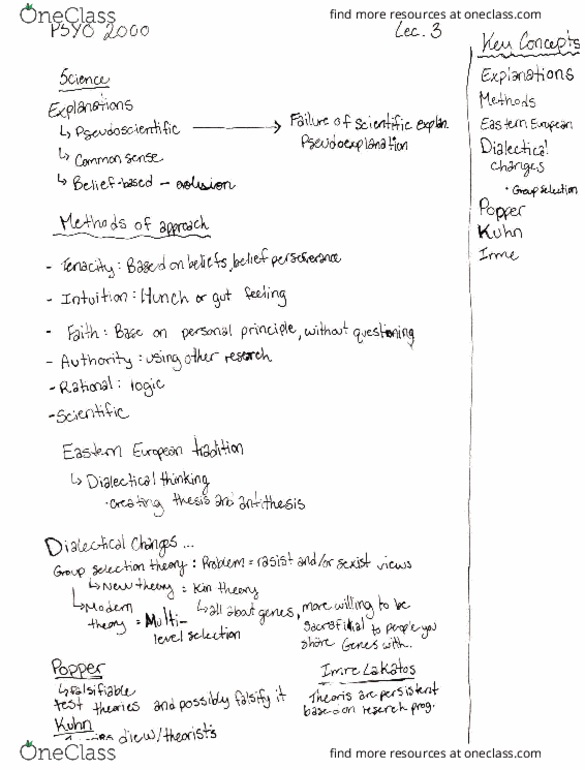 OneClass
find more resources at oneclass.com
PSYO 2000
Lec. 3
Key Concepts
Explanations
Methods
Eastern European
Dialectical
changes
• Group selection
Popper
Kuhn
Irme
Science
Explanations
↳ Pseudoscientific → Failure of scientific explan.
Pseudoexplanation
↳ Common sense
↳ Belief-based –
Methods of approach
- Tenacity: Based on beliefs, belief perserverance
- Intuition: Hunch or gut feeling
- Faith: Base on personal principle, without questioning
- Authority: using other research
- Rational: logic
- Scientific
Eastern European tradition
↳ Dialectical thinking
• creating thesis and antithesis
Dialectical Changes ...
Group selection theory: Problem = rasist and/or sexist views
↳ New theory = Kin theory
↳ all about genes, more willing to be
sacrificial to people you
share Genes with..
↳ Modern
theory = Multi-
level selection
Popper
↳ falsifiable
test theories and possibly falsify it
Kuhn
die w/ theorists
Imre Lakatos
Theoris are persistent
based on research prog.
OneClass
find more resources at oneclass.com